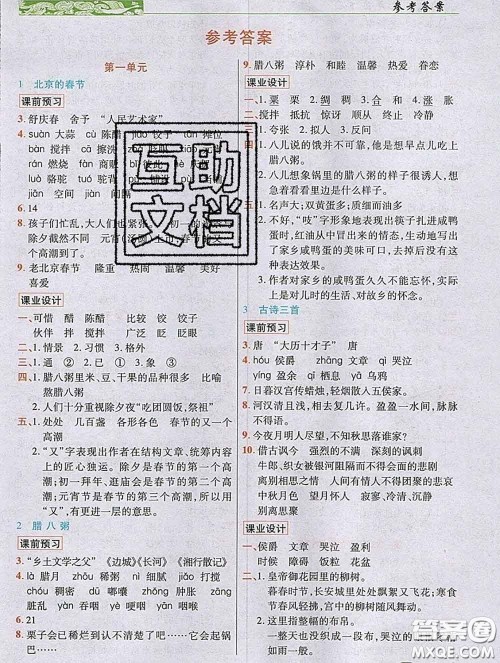 参考答案
参考答案
第一单元
1 北京的春节
课前预习
3. 舒庆春 舍予 “人民艺术家”
4. suàn 大蒜 cù 陈醋 jiǎo 饺子 摊位
bàn 搅拌 cā 擦洗
rán 燃烧 fàn 商贩
luò 骆驼 tuó 骆驼 背诵
6. 14
8. 孩子们忙乱,大人们也
高潮到了。
9. 老北京春节 隆重 热闹 温馨 美好
喜爱
课业设计
一、可惜 醋 陈醋 比较 饺 饺子
伙伴 拌 搅拌 广泛 眨 眨眼
二、1. 情景 2. 习惯
三、1. 通 ② 2. 已 ①
四、1. 腊八粥里米、豆、干果的品种很多,比喻
熬腊八粥
2. 人们十分重视除夕夜“吃团圆饭,祭祖”
五、1. 处处 几百盏 各形各色 春节的又一个
高潮
2. “又”字表现出作者在结构文章、统筹内容
上的匠心独运。除夕是春节的第一个高
潮,初一拜年、逛庙会是春节的第二个高
潮,而元宵节是春节的第三个高潮,所以说
“又”。
2 腊八粥
课前预习
3. “乡土文学之父” 《边城》《长河》《湘行散记》
6. 21
8. 栗子会已稀烂到认不清楚了吧!赤豆会煮
9. 腊八粥 淳朴 和睦 温馨 热爱 眷恋
课业设计
一、1. 粟 栗 2. 绸 稠 3. 和 4. 涨 胀
二、搅拌 抵抗 惊讶 顺从 终止 冷淡
三、1. 夸张 2. 拟人 3. 设问
四、1. 八儿说的饿并不可靠,他是想早点吃上腊
八粥。
2. 八儿想象锅里的腊八粥的样子很诱人,想
早点吃到腊八粥。
五、1. 名声大;双黄蛋多;质细油多
2. 不好,“吱”字形象地表现了筷子扎进咸鸭
蛋里的声音及红油冒出来的样子,生动地写
出了家乡咸鸭蛋的美味,去掉以后就没有
这种表达效果了。
3. 作者对家乡的咸鸭蛋久久不能忘怀,实际
上是对儿时的生活、对故乡的怀念。
3 古诗三首
课前预习
3. 唐 “大历十才子” 唐
4. hóu 侯爵 zhāng 文章 qì 哭泣
yíng 盈余 jiā 佳节 qī 栖息 yā 乌鸦
7. 日暮汉宫传蜡烛,轻烟散入五侯家。
8. 河汉清且浅,相去复几许。盈盈一水间,脉脉
不得语。
9. 今夜月明人尽望,不知秋思落谁家?
10. 借古讽今 强烈的不满 深刻的讽刺
牛郎、织女被银河阻隔而不得会面的悲剧
人间爱侣不能相见的离愁别恨、相思之情
中秋望月 孤寂 凄清 冷清 沉静
别离思聚
课业设计
一、侯爵 文章 哭泣 盈利
时候 障碍 饭粒 盆子
二、1. 皇帝御花园里的柳树。
暮春时节,长安城里处处飘絮又飞花,寒食
节春风轻拂,宫中的柳枝随风起舞。
2. 这里指整幅的布帛。
一整天也没织成一段布,哭泣的泪水如同